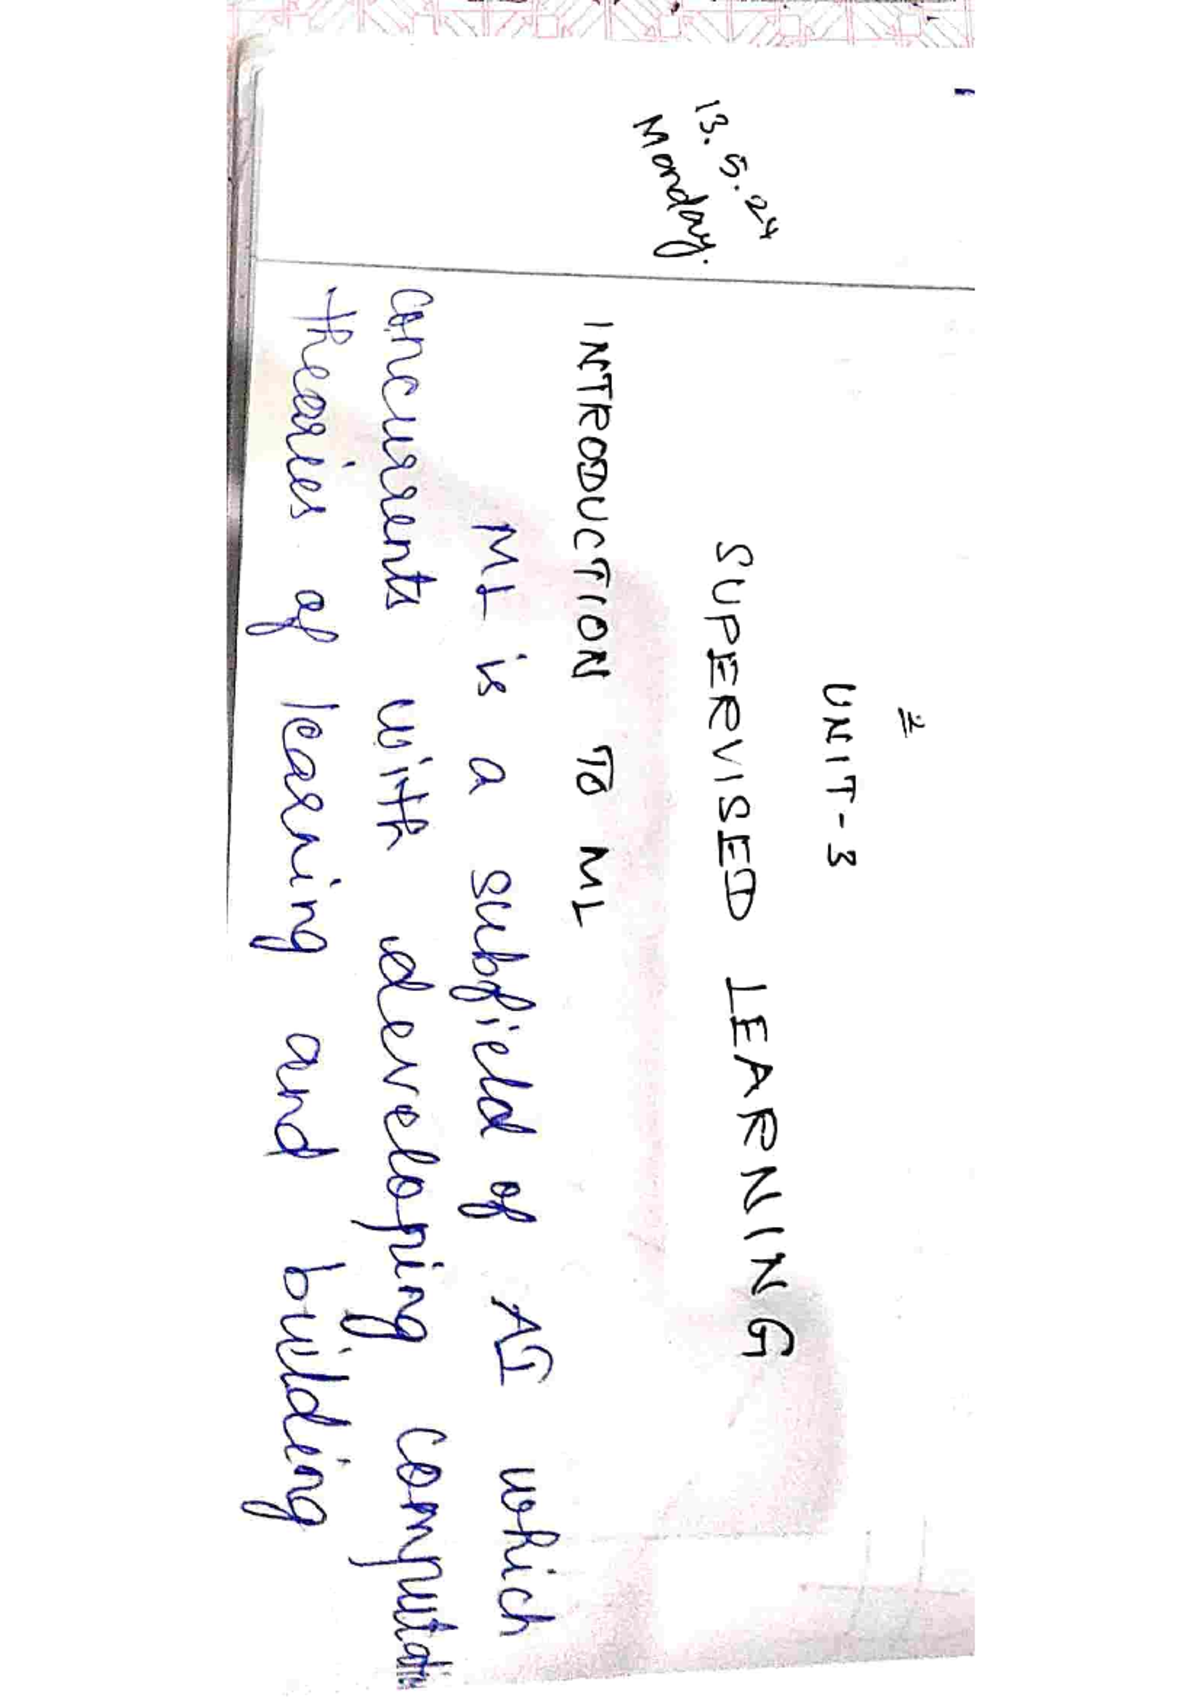 2
UNIT-3
13.5.24
Monday.
SUPERVISED LEARNING
INTRODUCTION TO ML
ML is a subfield of AI which
concurrents with developing computation
thearies of learning and building